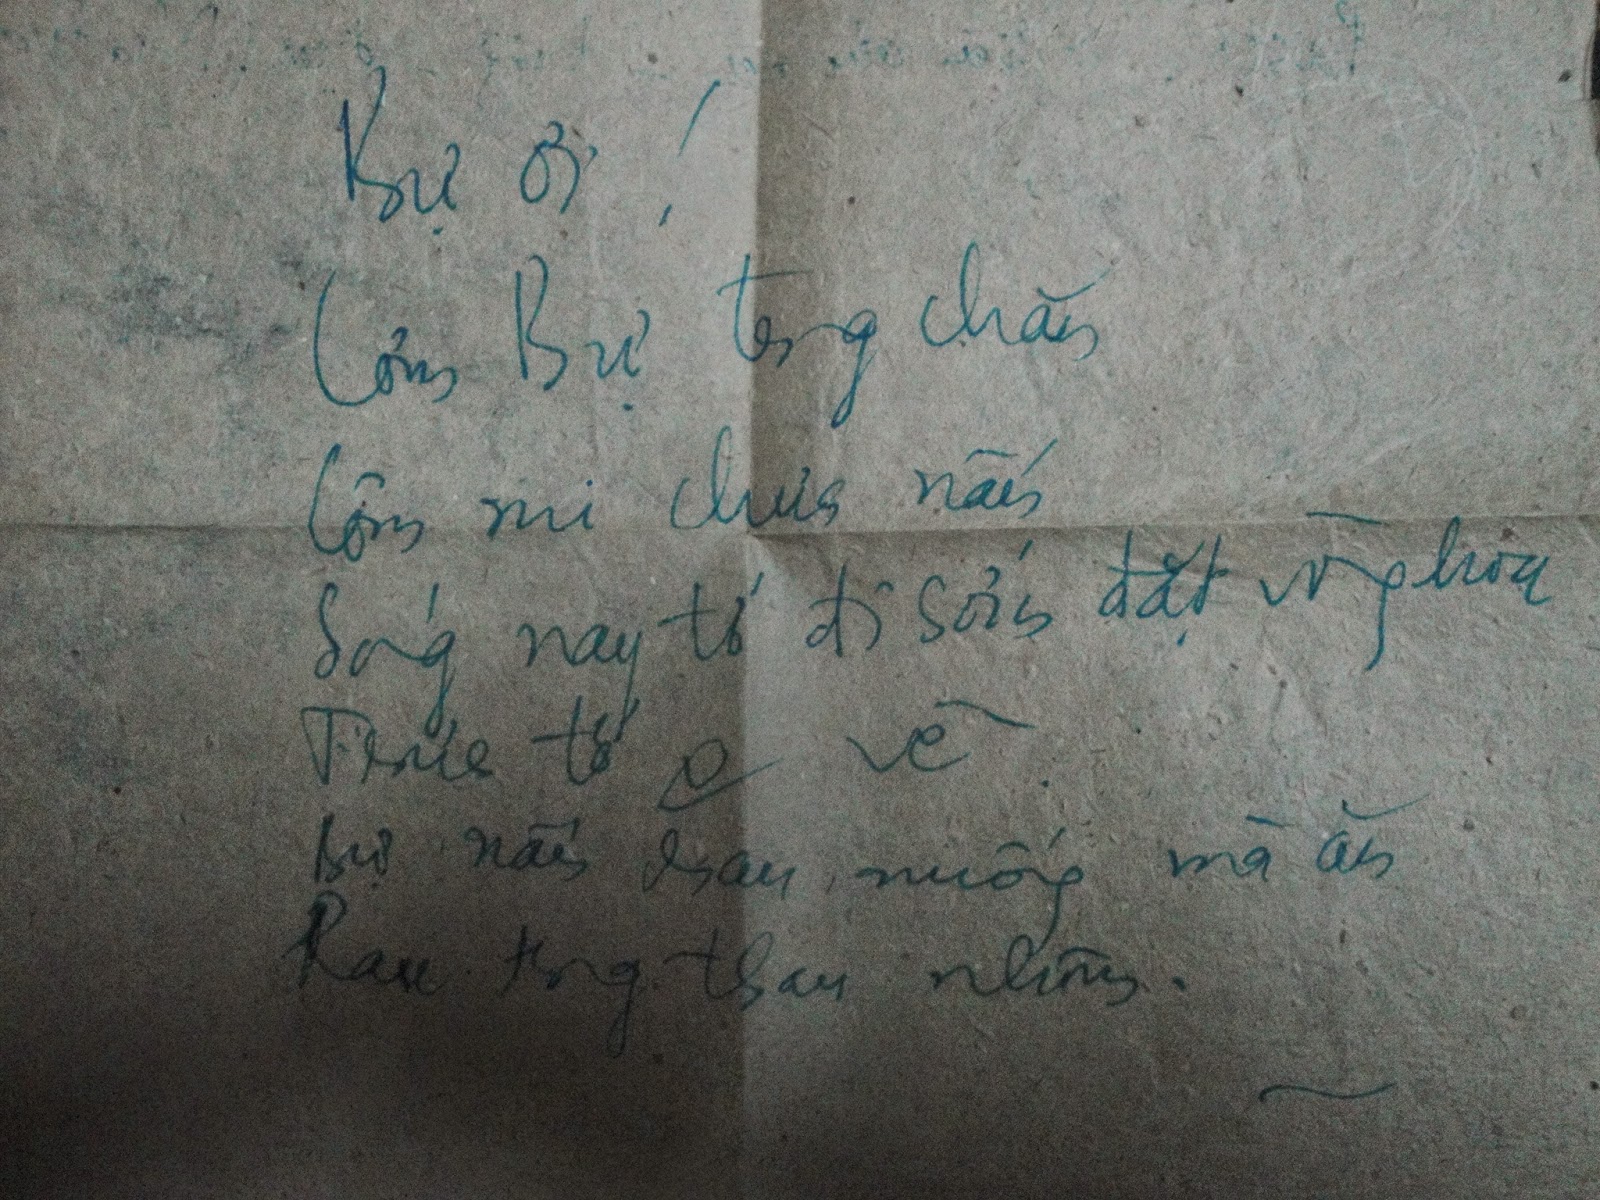 Bự ơi!
Cơm Bự trong chăn
Cơm mi chưa nấu
Sáng nay tớ đi sớm đặt vòng hoa
Trưa tớ về
Bự nấu rau muống mà ăn
Rau trong thau nhôm.